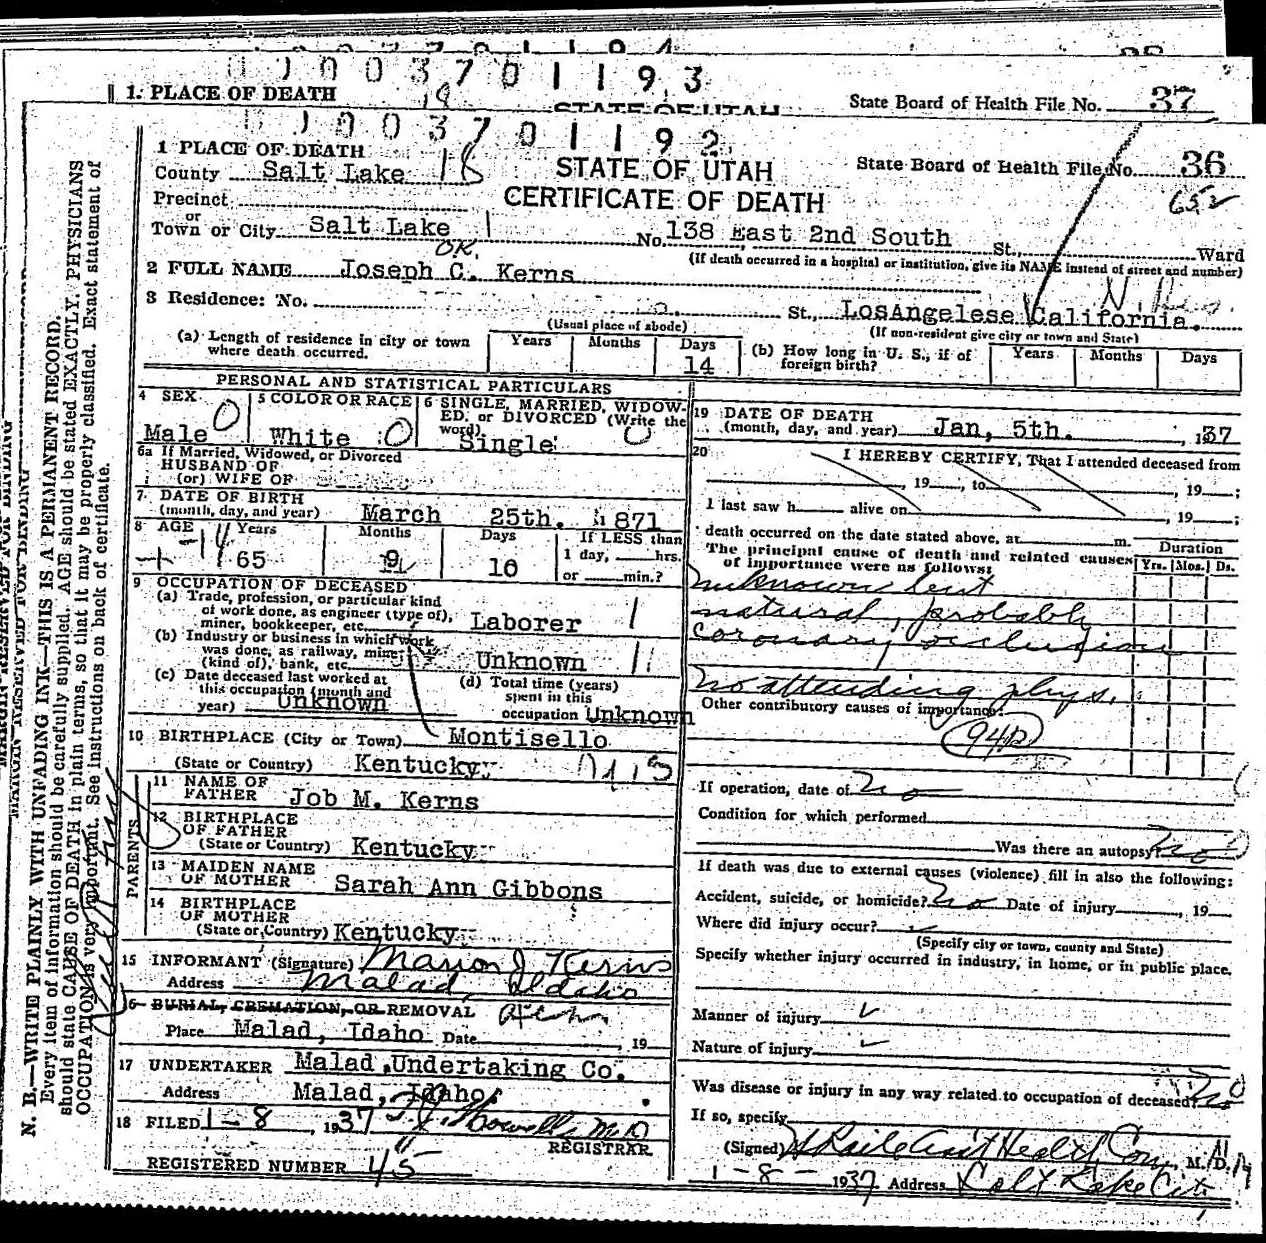 0 0 0 3 7 0 1 1 9 3
1. PLACE OF DEATH
STATE OF UTAH
State Board of Health File No. 37
0 0 0 3 7 0 1 1 9 2
1 PLACE OF DEATH
County Salt Lake 18
STATE OF UTAH
State Board of Health File No. 36
Precinct
CERTIFICATE OF DEATH
652
or
Town or City Salt Lake 1
No. 138 East 2nd South St., Ward
(If death occurred in a hospital or institution, give its NAME instead of street and number)
OK.
2 FULL NAME Joseph C. Kerns
3 Residence: No. St., LosAngelese California.
(Usual place of abode)
(If non-resident give city or town and State)
(a) Length of residence in city or town where death occurred.
Years Months Days
14
(b) How long in U. S., if of foreign birth?
Years Months Days
PERSONAL AND STATISTICAL PARTICULARS
4 SEX
Male 0
5 COLOR OR RACE
White 0
6 SINGLE, MARRIED, WIDOW-
ED, or DIVORCED (Write the
word)
Single
6a If Married, Widowed, or Divorced
HUSBAND OF
(or) WIFE OF
7 DATE OF BIRTH
(month, day, and year) March 25th. 1871
8 AGE Years Months Days If LESS than
65 9 10 1 day, hrs.
or min.?
9 OCCUPATION OF DECEASED
(a) Trade, profession, or particular kind
of work done, as engineer (type of),
miner, bookkeeper, etc. Laborer
(b) Industry or business in which work
was done, as railway, mine
(kind of), bank, etc. Unknown
(c) Date deceased last worked at
this occupation (month and
year) Unknown
(d) Total time (years)
spent in this
occupation Unknown
10 BIRTHPLACE (City or Town) Montisello
(State or Country) Kentucky
PARENTS
11 NAME OF
FATHER Job M. Kerns
12 BIRTHPLACE
OF FATHER
(State or Country) Kentucky
13 MAIDEN NAME
OF MOTHER Sarah Ann Gibbons
14 BIRTHPLACE
OF MOTHER
(State or Country) Kentucky
15 INFORMANT (Signature) Marion J Kerns
Address Malad, Idaho
16 BURIAL, CREMATION, OR REMOVAL
Place Malad, Idaho Date 19
17 UNDERTAKER Malad Undertaking Co.
Address Malad, Idaho
18 FILED 1-8, 1937
REGISTRAR
REGISTERED NUMBER 45
19 DATE OF DEATH
(month, day, and year) Jan, 5th. , 1937
20 I HEREBY CERTIFY, That I attended deceased from
, 19 , to , 19 ;
I last saw h alive on , 19 ;
death occurred on the date stated above, at m.
The principal cause of death and related causes
of importance were as follows:
Duration
Yrs. Mos. Ds.
unknown but
natural, probably
coronary occlusion
no attending phys.
Other contributory causes of importance:
If operation, date of no
Condition for which performed
Was there an autopsy? no
If death was due to external causes (violence) fill in also the following:
Accident, suicide, or homicide? no Date of injury , 19
Where did injury occur?
(Specify city or town, county and State)
Specify whether injury occurred in industry, in home, or in public place.
Manner of injury
Nature of injury
Was disease or injury in any way related to occupation of deceased? no
If so, specify
(Signed) M. D.
1-8- 1937 Address Salt Lake City
N. B.—WRITE PLAINLY WITH UNFADING INK—THIS IS A PERMANENT RECORD.
Every item of information should be carefully supplied. AGE should be stated EXACTLY. PHYSICIANS
should state CAUSE OF DEATH in plain terms, so that it may be properly classified. Exact statement of
OCCUPATION is very important. See instructions on back of certificate.